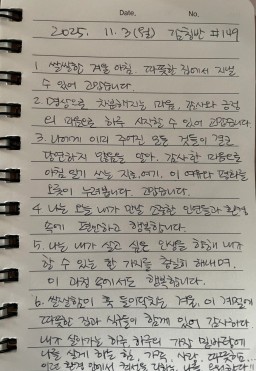 Date. No.
2025. 11. 3 (월) 감칭반 #149
1. 쌀쌀한 겨울 아침. 따뜻한 집에서 지낼
수 있어 고맙습니다.
2. 명상으로 차분해지는 마음, 감사와 긍정
의 마음으로 하루 시작할 수 있어 고맙습니다.
3. 나에게 이미 주어진 모든 것들이 결코
당연하지 않음을 알아. 감사한 마음으로
아침 일기 쓰는 지금, 여기. 이 여유와 평화를
오롯이 누려봅니다. 고맙습니다.
4. 나는 오늘 내가 만날 소중한 인연들과 환경
속에 편안하고 행복합니다.
5. 나는 내가 살고 싶은 인생을 향해 내가
할 수 있는 한 가지를 충실히 해내며.
이 과정 속에서도 행복합니다.
6. 쌀쌀함이 훅 들이닥치는 겨울. 이 계절에
따뜻한 집과 식구들이 함께 있어 감사하다.
내가 살아가는 하루, 하루의 가장 밑바닥에
나를 살게 하는 힘, 가족, 사랑, 따뜻함을...